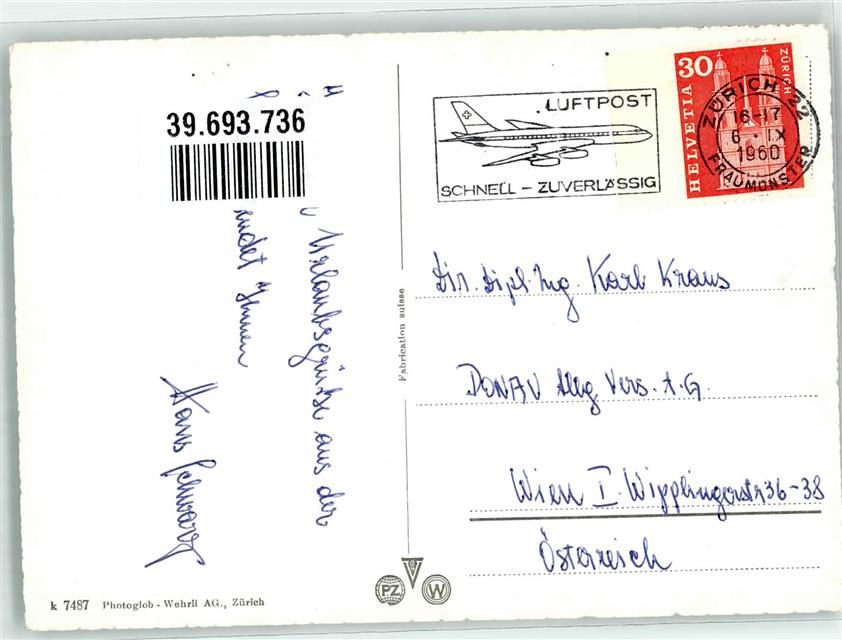 39.693.736
Urlaubsgrüße aus der
sendet Ihnen
Hans Schwarz
k 7487 Photoglob - Wehrli AG., Zürich
Fabrication suisse
PZ
W
LUFTPOST
SCHNELL – ZUVERLÄSSIG
30
HELVETIA
ZÜRICH
ZÜRICH 22
16-17
6. IX
1960
FRAUMÜNSTER
Dir. Dipl. Ing. Karl Kraus
DONAU Allg Vers. A.G.
Wien I. Wipplingerstr 36-38
Österreich